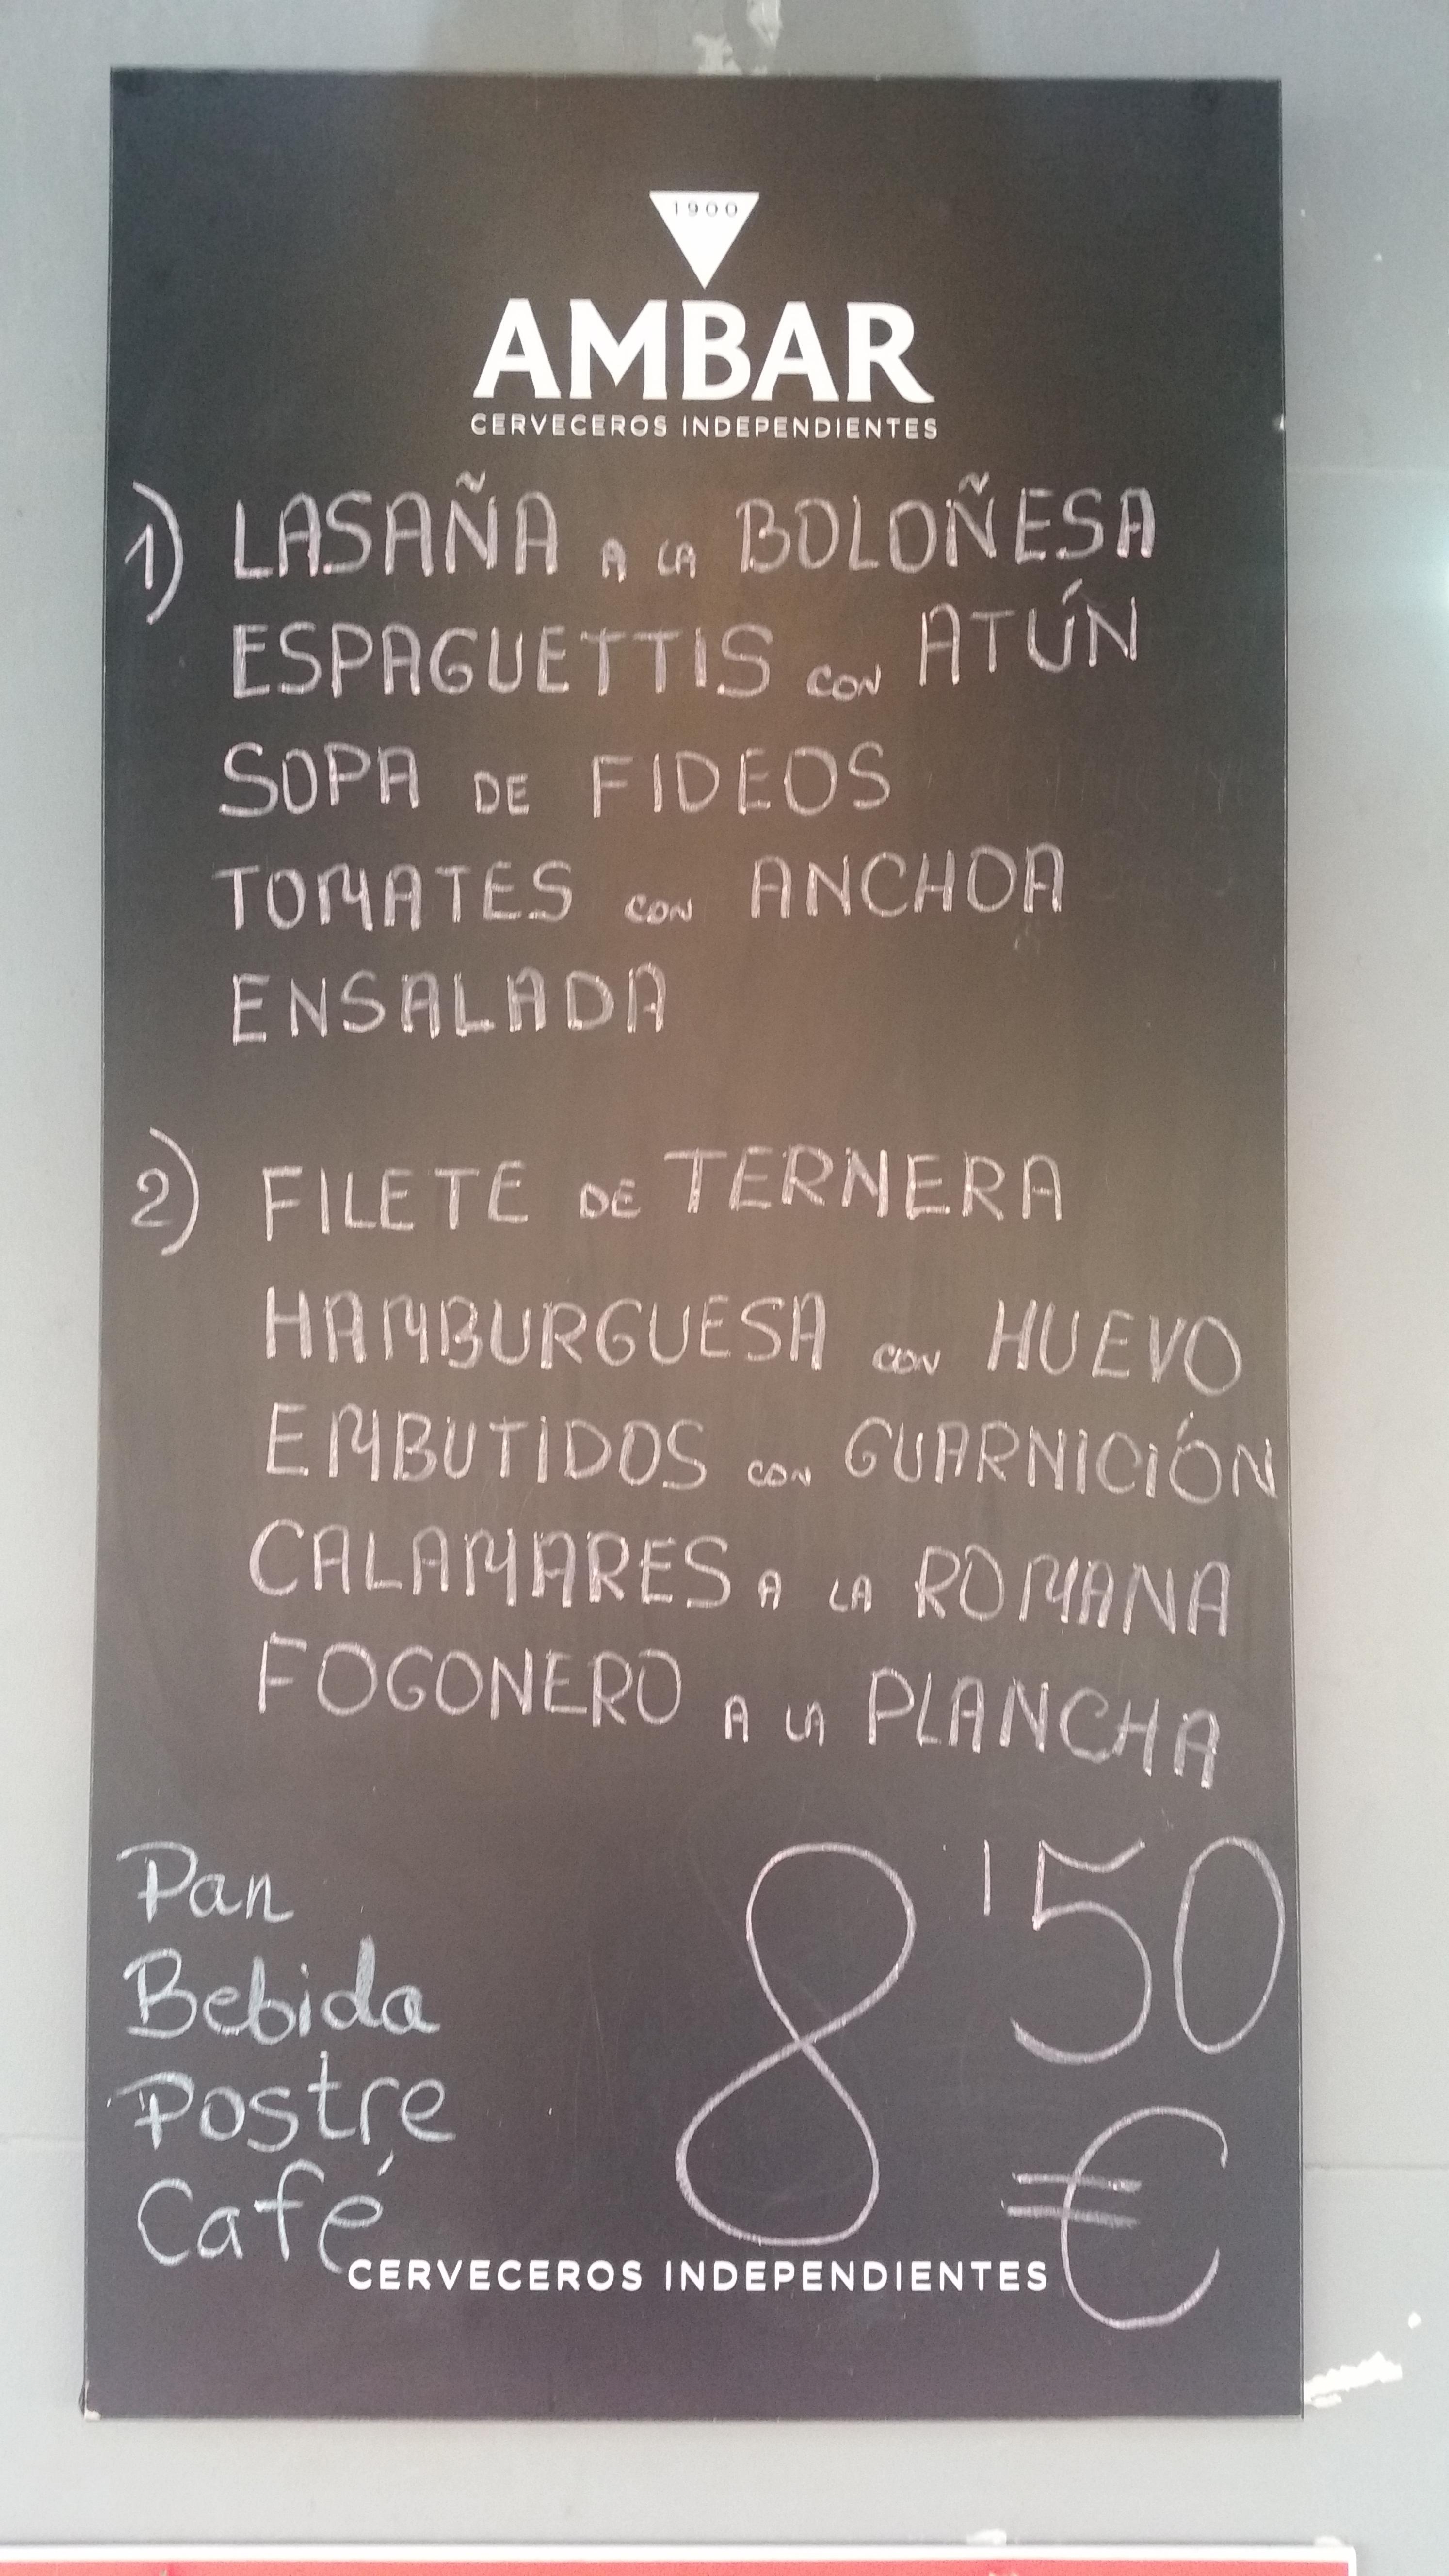 1900
AMBAR
CERVECEROS INDEPENDIENTES
1) LASAÑA A LA BOLOÑESA
ESPAGUETTIS CON ATÚN
SOPA DE FIDEOS
TOMATES CON ANCHOA
ENSALADA
2) FILETE DE TERNERA
HAMBURGUESA CON HUEVO
EMBUTIDOS CON GUARNICIÓN
CALAMARES A LA ROMANA
FOGONERO A LA PLANCHA
Pan
Bebida
Postre
Café
8'50
€
CERVECEROS INDEPENDIENTES